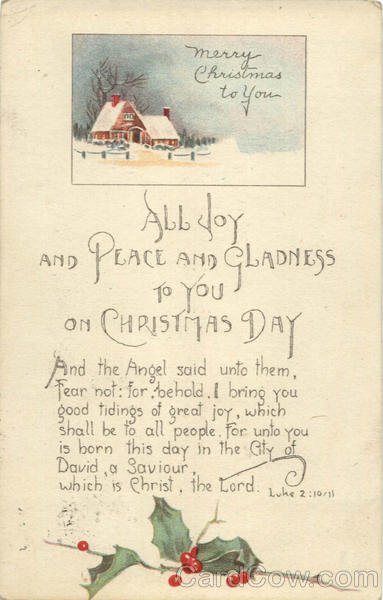 Merry
Christmas
to You
ALL JOY
AND PEACE AND GLADNESS
TO YOU
ON CHRISTMAS DAY
And the Angel said unto them,
Fear not: for, behold, I bring you
good tidings of great joy, which
shall be to all people. For unto you
is born this day in the City of
David, a Saviour,
which is Christ, the Lord. Luke 2:10/11
CardCow.com